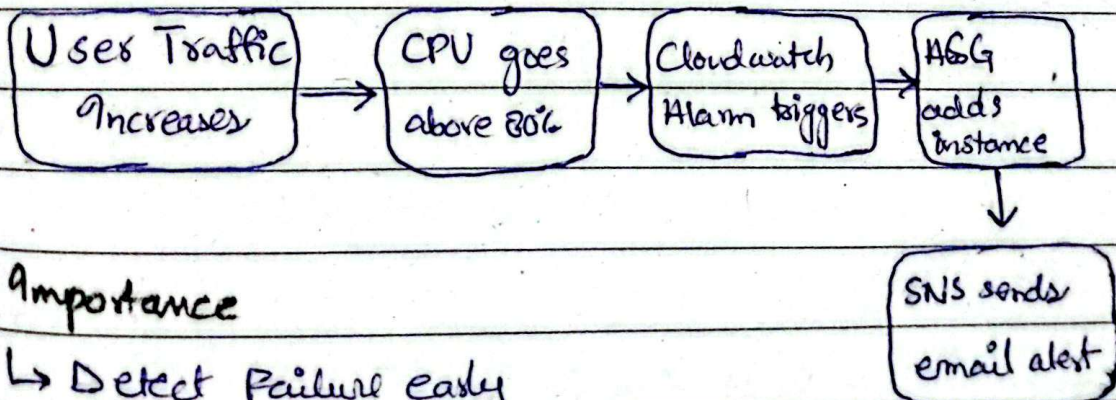 User Traffic
Increases
CPU goes
above 80%
Cloudwatch
Alarm triggers
ASG
adds
instance
SNS sends
email alert
Importance
↳ Detect Failure early